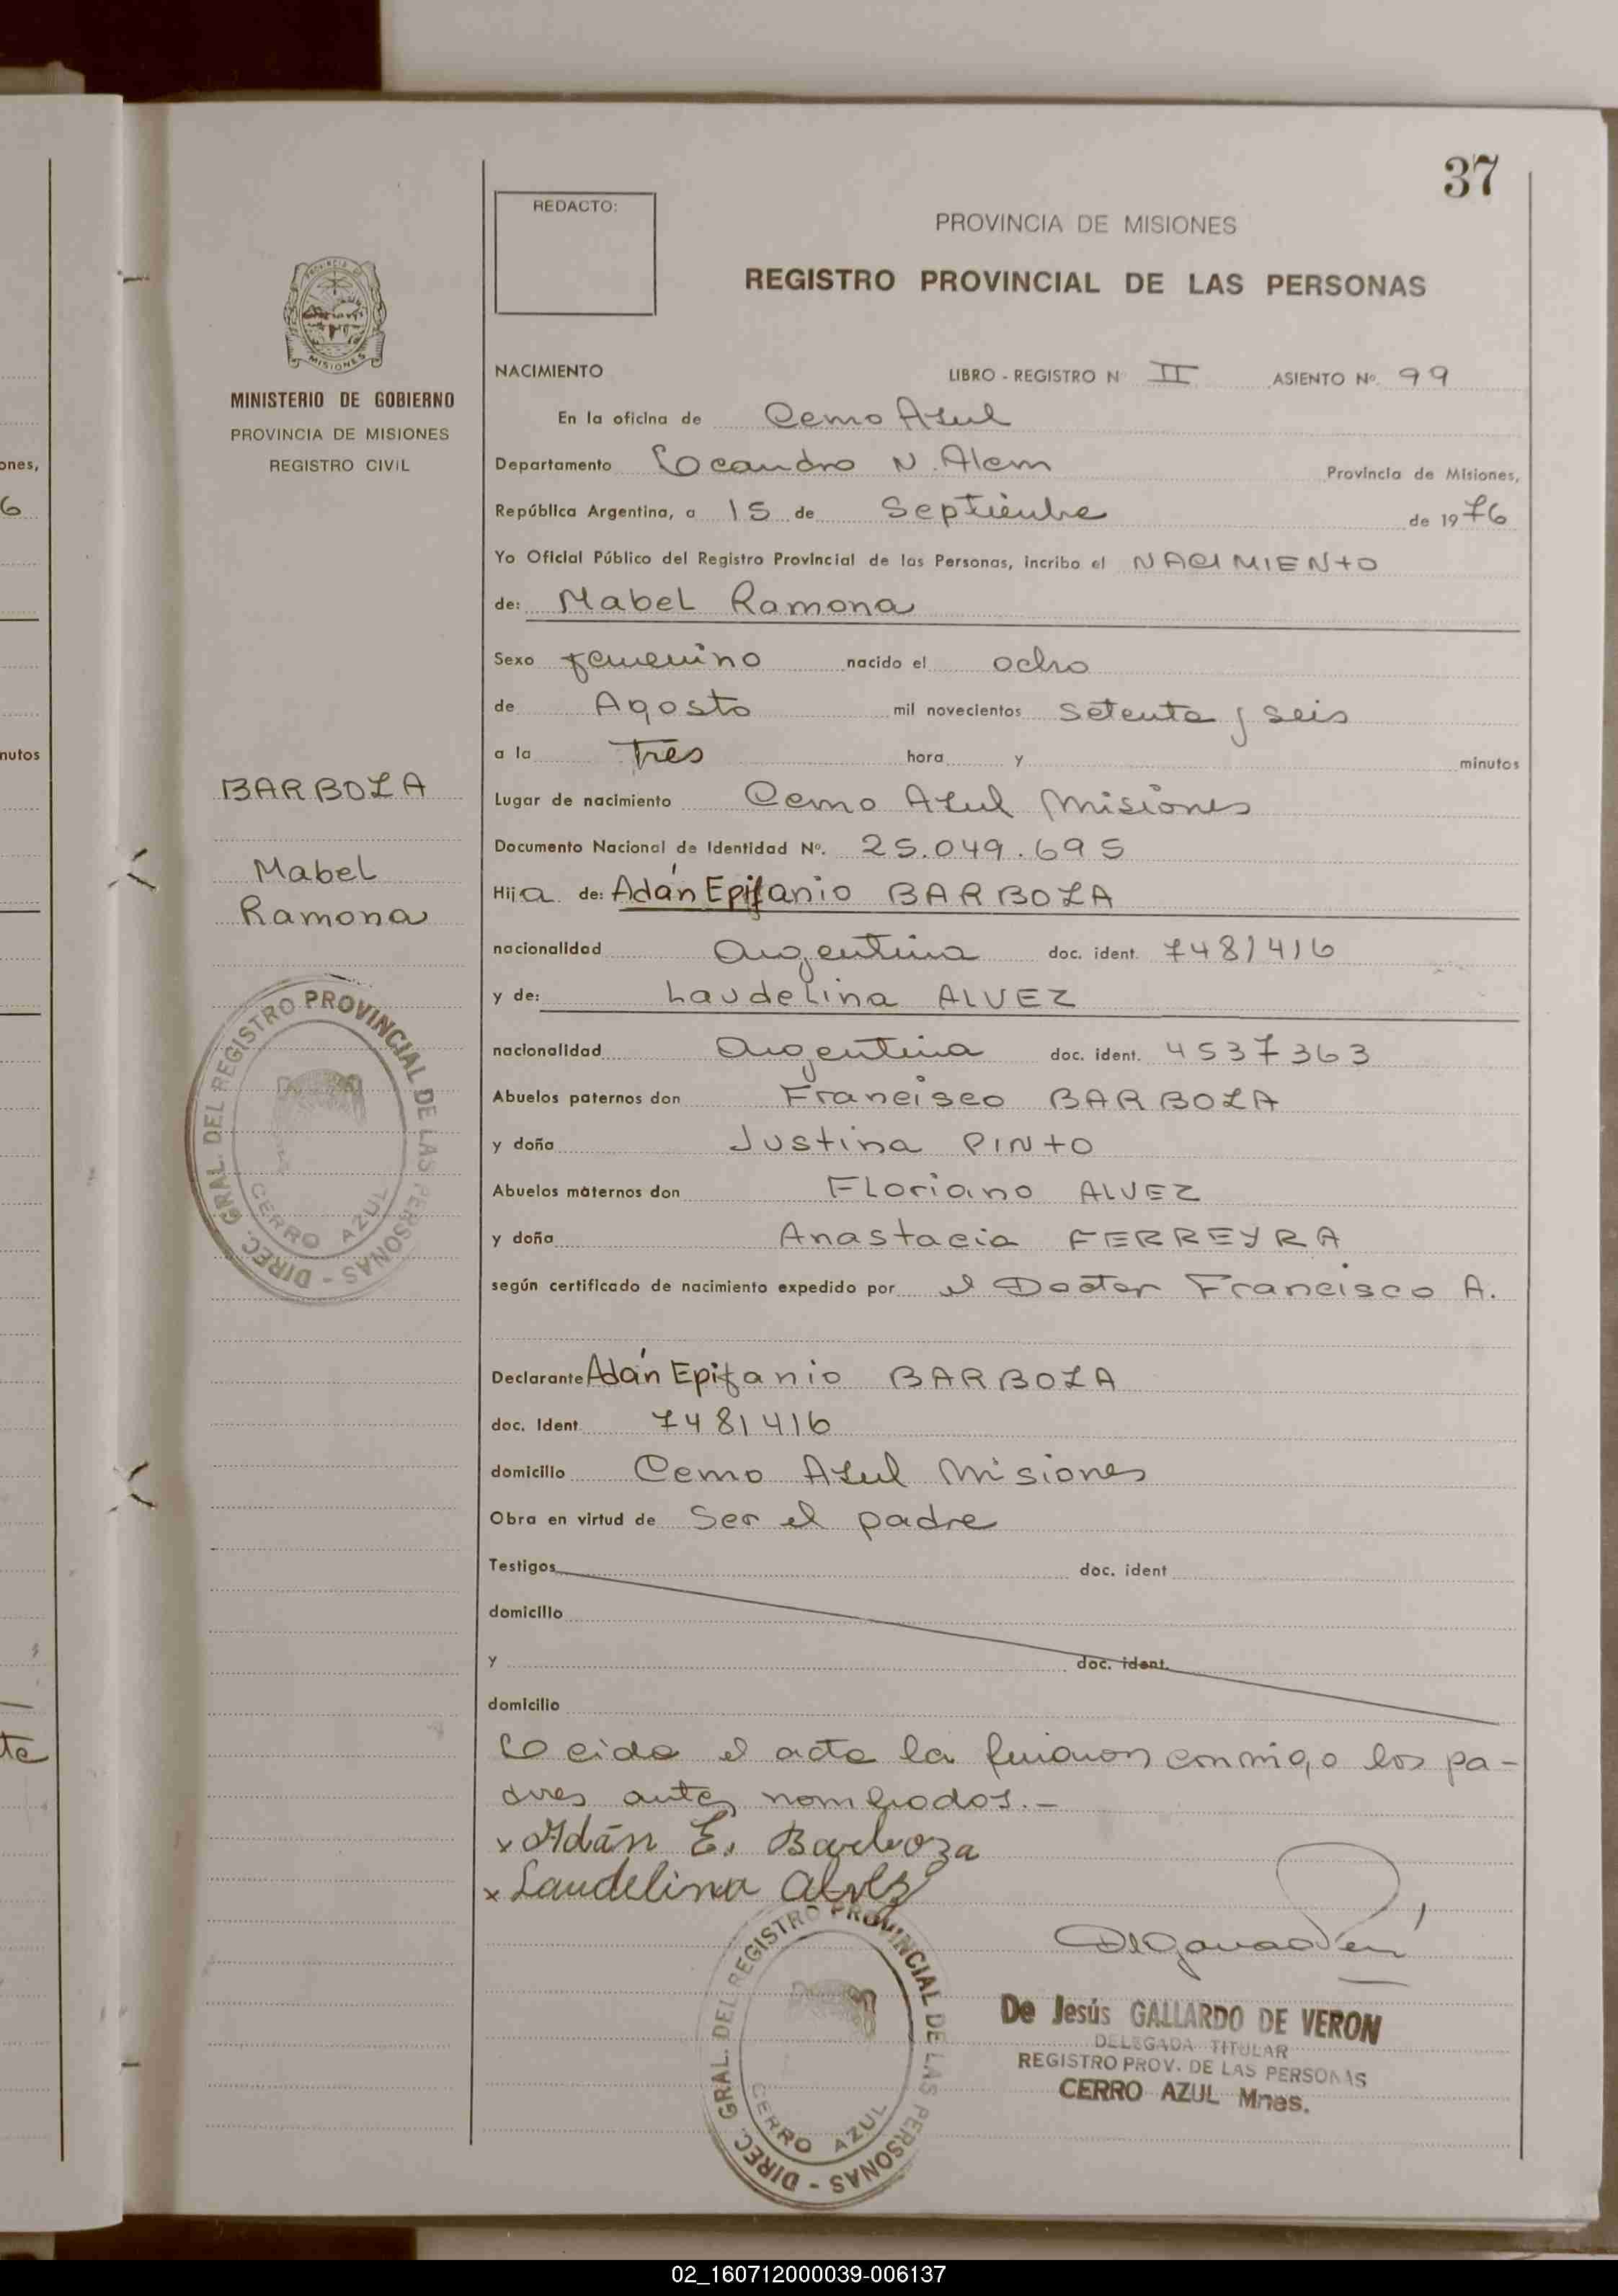 37
REDACTO:
PROVINCIA DE MISIONES
REGISTRO PROVINCIAL DE LAS PERSONAS
PROVINCIA DE
MISIONES
MINISTERIO DE GOBIERNO
PROVINCIA DE MISIONES
REGISTRO CIVIL
NACIMIENTO LIBRO - REGISTRO N II ASIENTO Nº. 99
En la oficina de Cerro Azul
Departamento Leandro N. Alem Provincia de Misiones,
República Argentina, a 15 de Septiembre de 1976
Yo Oficial Público del Registro Provincial de las Personas, incribo el NACIMIENTO
de: Mabel Ramona
Sexo femenino nacido el ocho
de Agosto mil novecientos setenta y seis
a la Tres hora y minutos
Lugar de nacimiento Cerro Azul Misiones
Documento Nacional de Identidad Nº. 25.049.695
Hija de: Adán Epifanio BARBOZA
nacionalidad Argentina doc. ident. 7481416
y de: Laudelina ALVEZ
nacionalidad Argentina doc. ident. 4537363
Abuelos paternos don Francisco BARBOZA
y doña Justina PINTO
Abuelos maternos don Floriano ALVEZ
y doña Anastacia FERREYRA
según certificado de nacimiento expedido por el Doctor Francisco A.
Declarante Adán Epifanio BARBOZA
doc. Ident 7481416
domicilio Cerro Azul Misiones
Obra en virtud de Ser el padre
Testigos doc. ident
domicilio
y doc. ident.
domicilio
Leida el acta la firman conmigo los pa-
dres antes nombrados.-
x Adán E. Barboza
x Laudelina Alvez
De Jesús GALLARDO DE VERON
DELEGADA TITULAR
REGISTRO PROV. DE LAS PERSONAS
CERRO AZUL Mnes.
DIREC. GRAL. DEL REGISTRO PROVINCIAL DE LAS PERSONAS -
CERRO AZUL
BARBOZA
Mabel
Ramona
DIREC. GRAL. DEL REGISTRO PROVINCIAL DE LAS PERSONAS -
CERRO AZUL
ones,
6
nutos
te
02_160712000039-006137